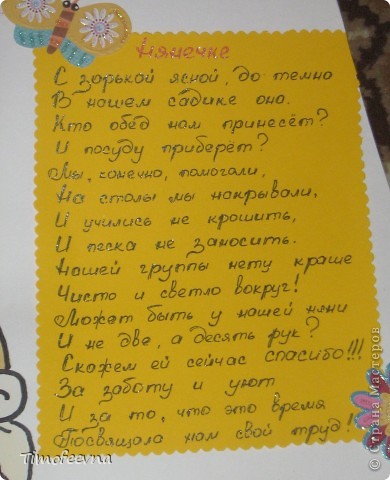 Нянечке
С зорькой ясной, до темна
В нашем садике она.
Кто обед нам принесёт?
И посуду приберёт?
Мы, конечно, помогали,
На столы мы накрывали,
И учились не крошить,
И песка не заносить.
Нашей группы нету краше
Чисто и светло вокруг!
Может быть у нашей няни
И не две, а десять рук?
Скажем ей сейчас спасибо!!!
За заботу и уют
И за то, что это время
Посвящала нам свой труд!
Timofeevna
© Страна Мастеров